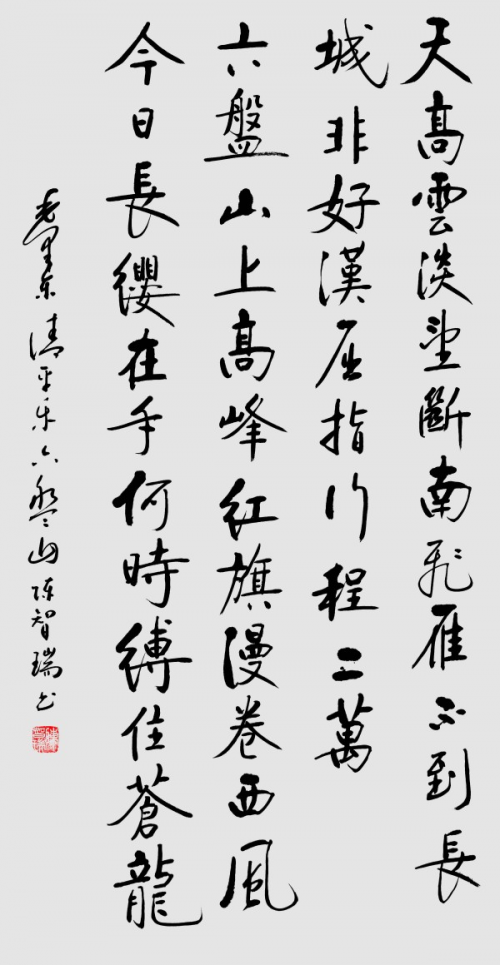 天高雲淡望斷南飛雁不到長
城非好漢屈指行程二萬
六盤山上高峰紅旗漫卷西風
今日長纓在手何時縛住蒼龍
毛澤東清平樂六盤山陳智瑞书